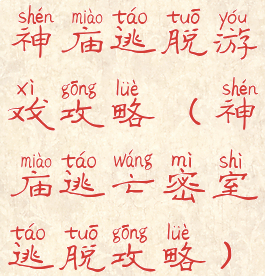 shén miào táo tuō yóu
神庙逃脱游
xì gōng lüè shén
戏攻略（神
miào táo wáng mì shì
庙逃亡密室
táo tuō gōng lüè
逃脱攻略）